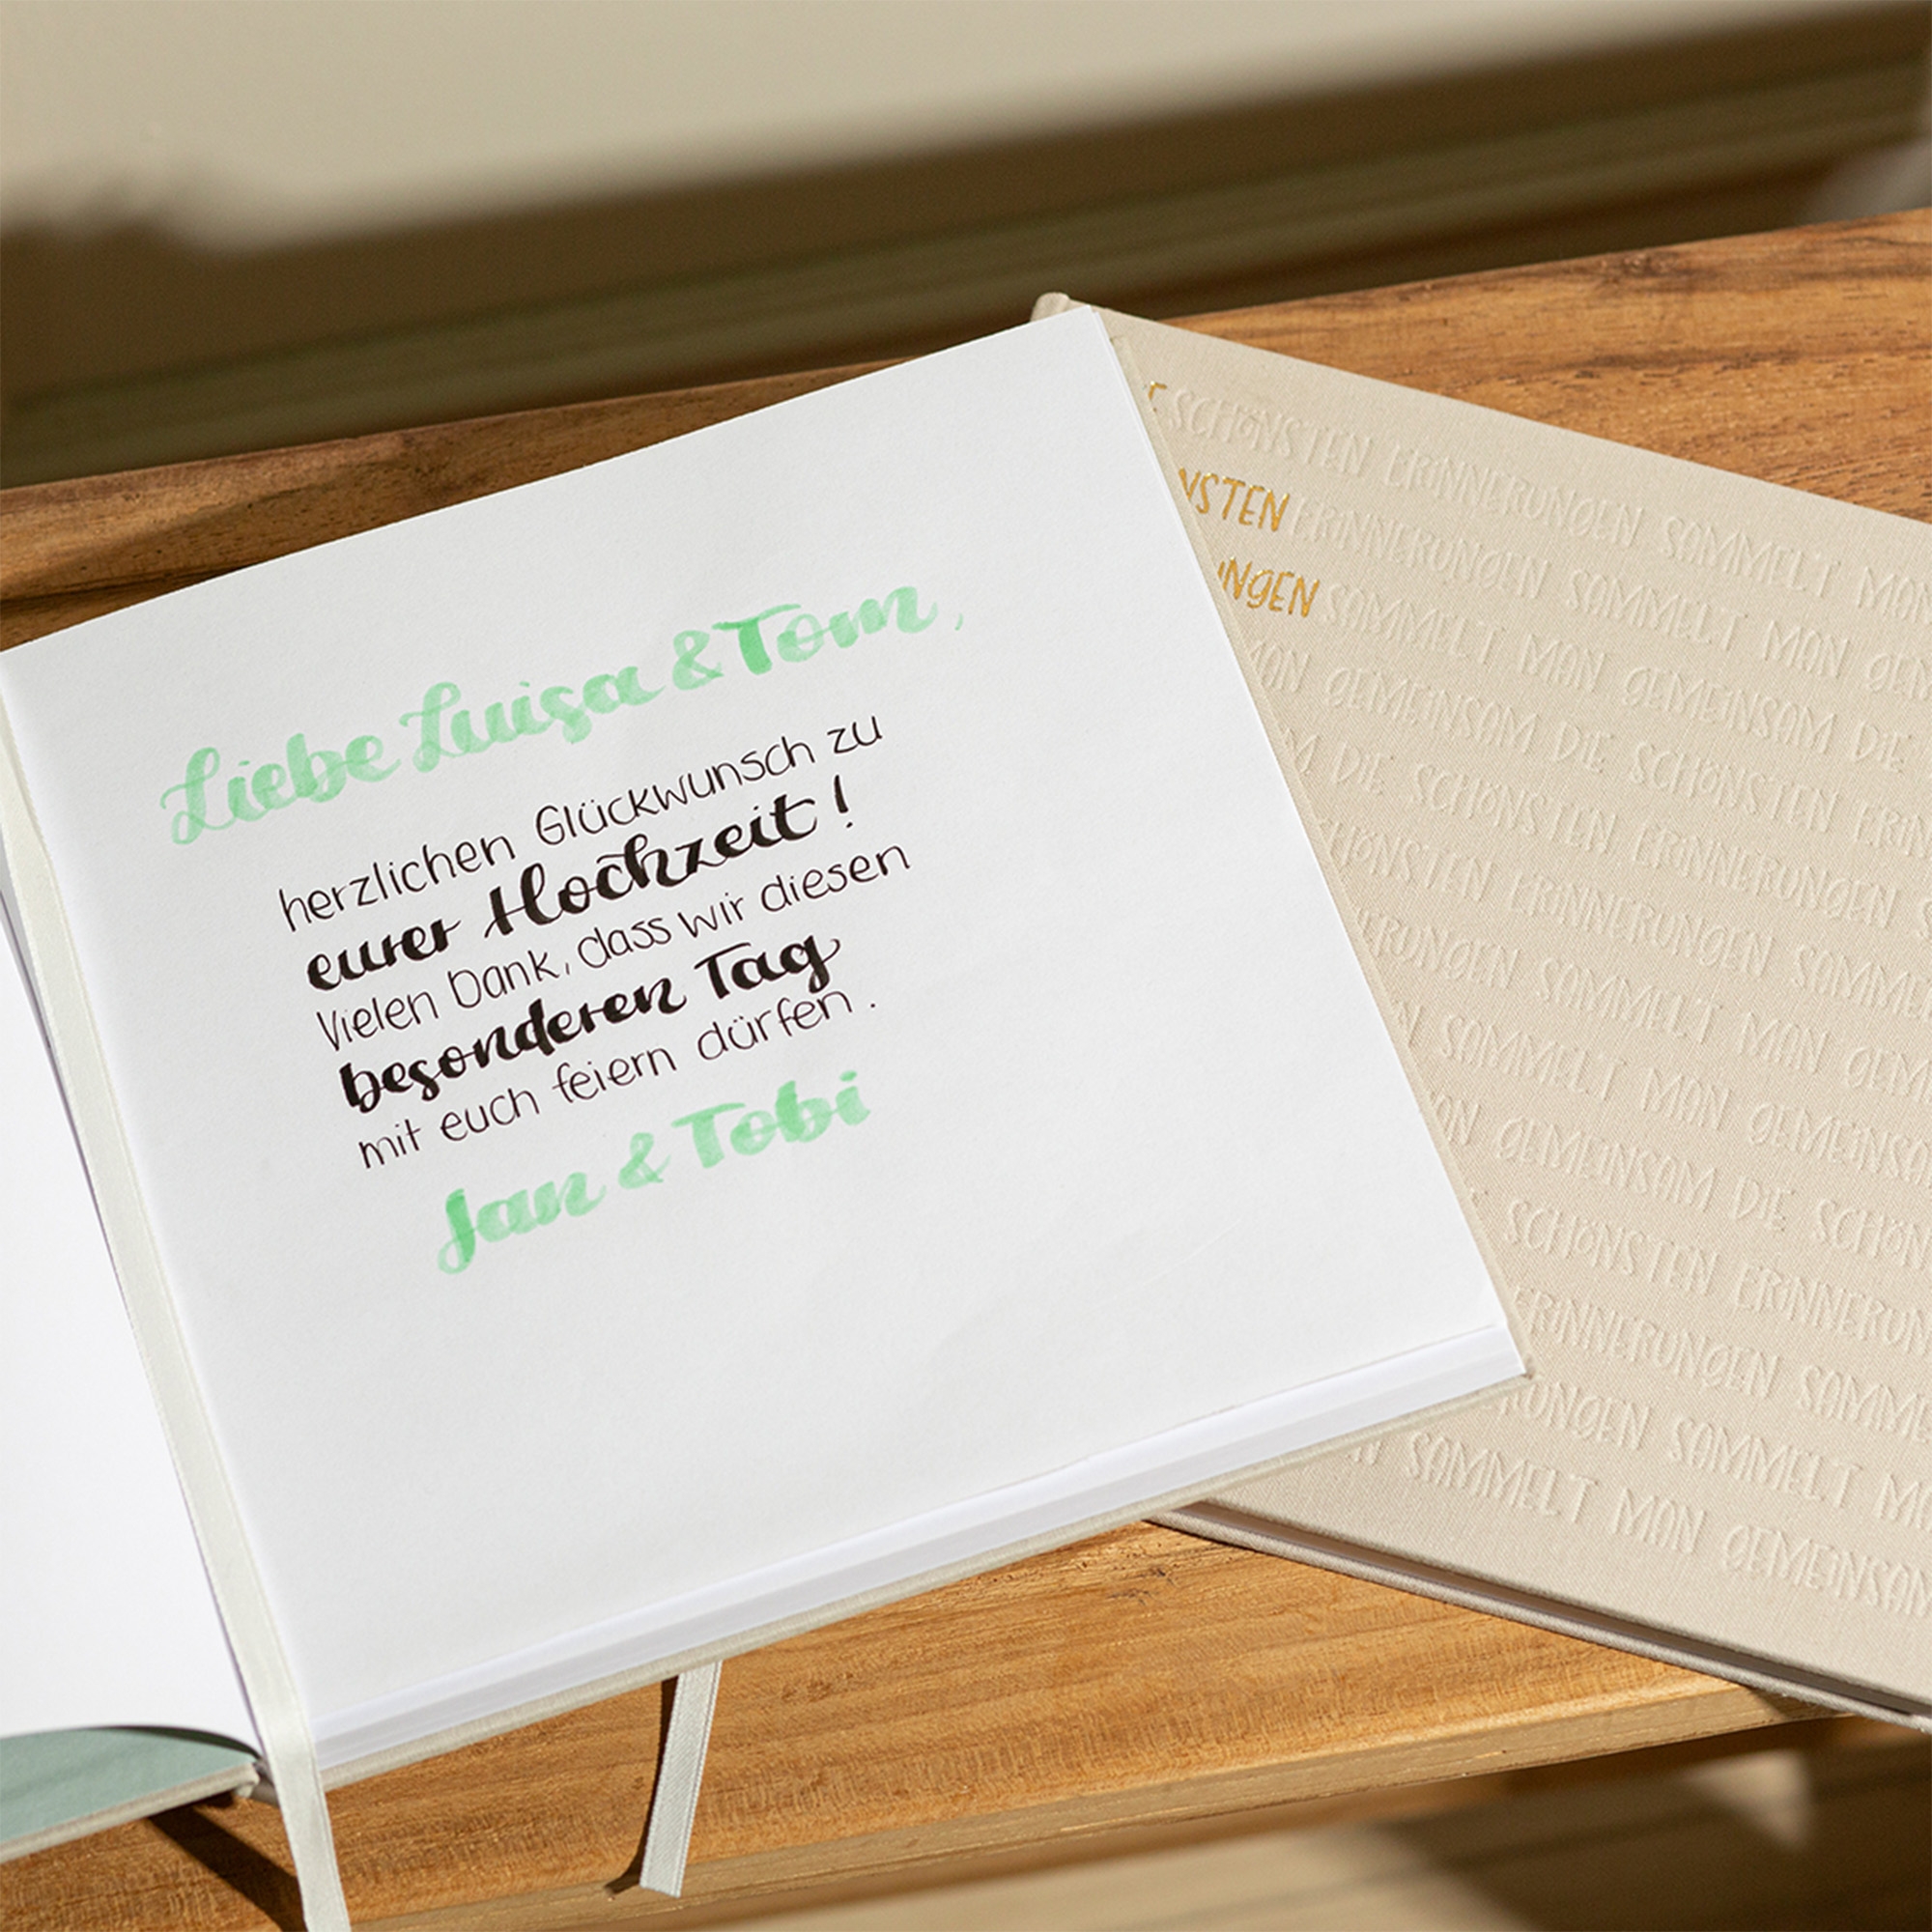 Liebe Luisa & Tom,
herzlichen Glückwunsch zu
eurer Hochzeit!
Vielen Dank, dass wir diesen
besonderen Tag
mit euch feiern dürfen.
Jan & Tobi
SCHÖNSTEN ERINNERUNGEN SAMMELT
ERINNERUNGEN SAMMELT MAN
SAMMELT MAN GEMEINSAM DIE
MAN GEMEINSAM DIE SCHÖNSTEN
DIE SCHÖNSTEN ERINNERUNGEN
ERINNERUNGEN
SAMMELT MAN
SAMMELT MAN
GEMEINSAM DIE
SCHÖNSTEN
ERINNERUNGEN
SAMMELT
SAMMELT MAN